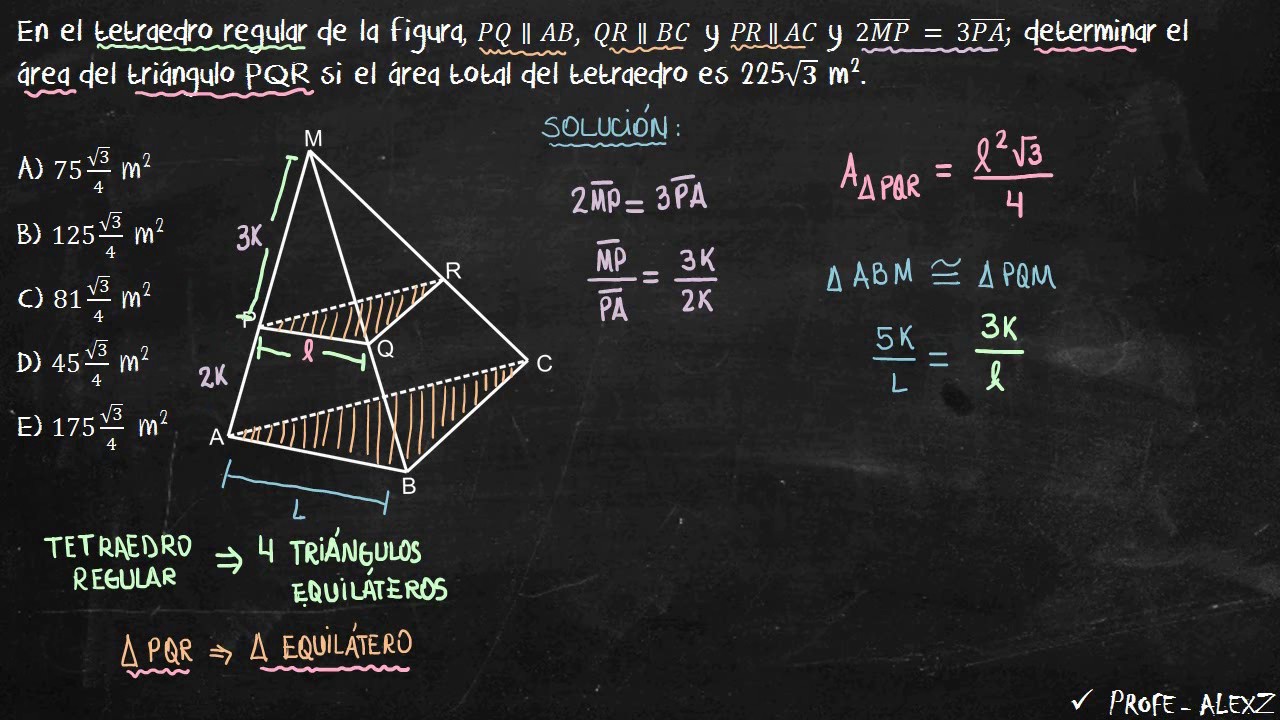 En el tetraedro regular de la figura, PQ ∥ AB, QR ∥ BC y PR ∥ AC y 2M̅P̅ = 3P̅A̅; determinar el
área del triángulo PQR si el área total del tetraedro es 225√3 m².
SOLUCIÓN:
A) 75 √3/4 m²
B) 125 √3/4 m²
C) 81 √3/4 m²
D) 45 √3/4 m²
E) 175 √3/4 m²
M
3K
R
P
Q
l
2K
C
A
B
L
2M̅P̅ = 3P̅A̅
M̅P̅/P̅A̅ = 3K/2K
A△PQR = l²√3/4
△ABM ≅ △PQM
5K/L = 3K/l
TETRAEDRO
REGULAR
⇒ 4 TRIÁNGULOS
EQUILÁTEROS
△ PQR ⇒ △ EQUILÁTERO
✓ PROFE - ALEXZ